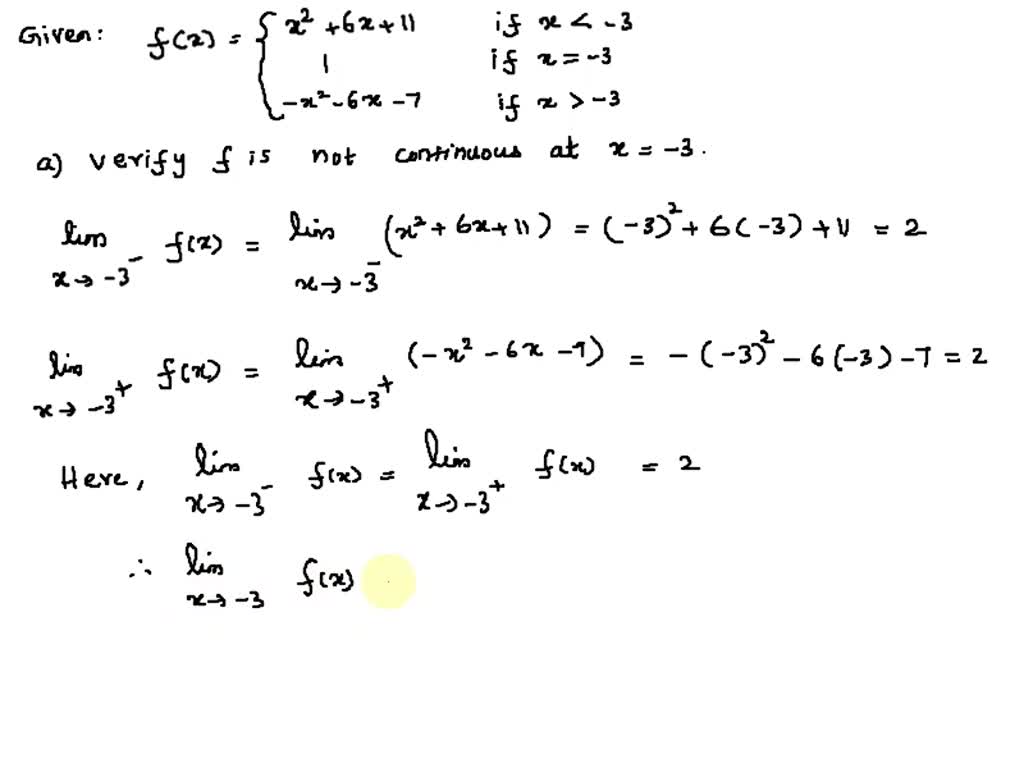 Given: f(x) = { x² + 6x + 11 if x < -3
1 if x = -3
-x² - 6x - 7 if x > -3
a) verify f is not continuous at x = -3.
lim x→-3⁻ f(x) = lim x→-3⁻ (x² + 6x + 11) = (-3)² + 6(-3) + 11 = 2
lim x→-3⁺ f(x) = lim x→-3⁺ (-x² - 6x - 7) = -(-3)² - 6(-3) - 7 = 2
Here, lim x→-3⁻ f(x) = lim x→-3⁺ f(x) = 2
∴ lim x→-3 f(x)